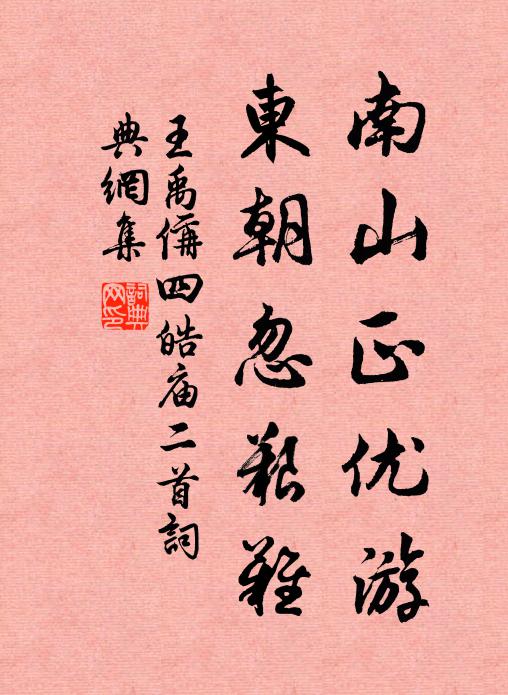 南山正优游
東朝忽艱難
王禹偁四皓庙二首詞
典網集
詞典网印